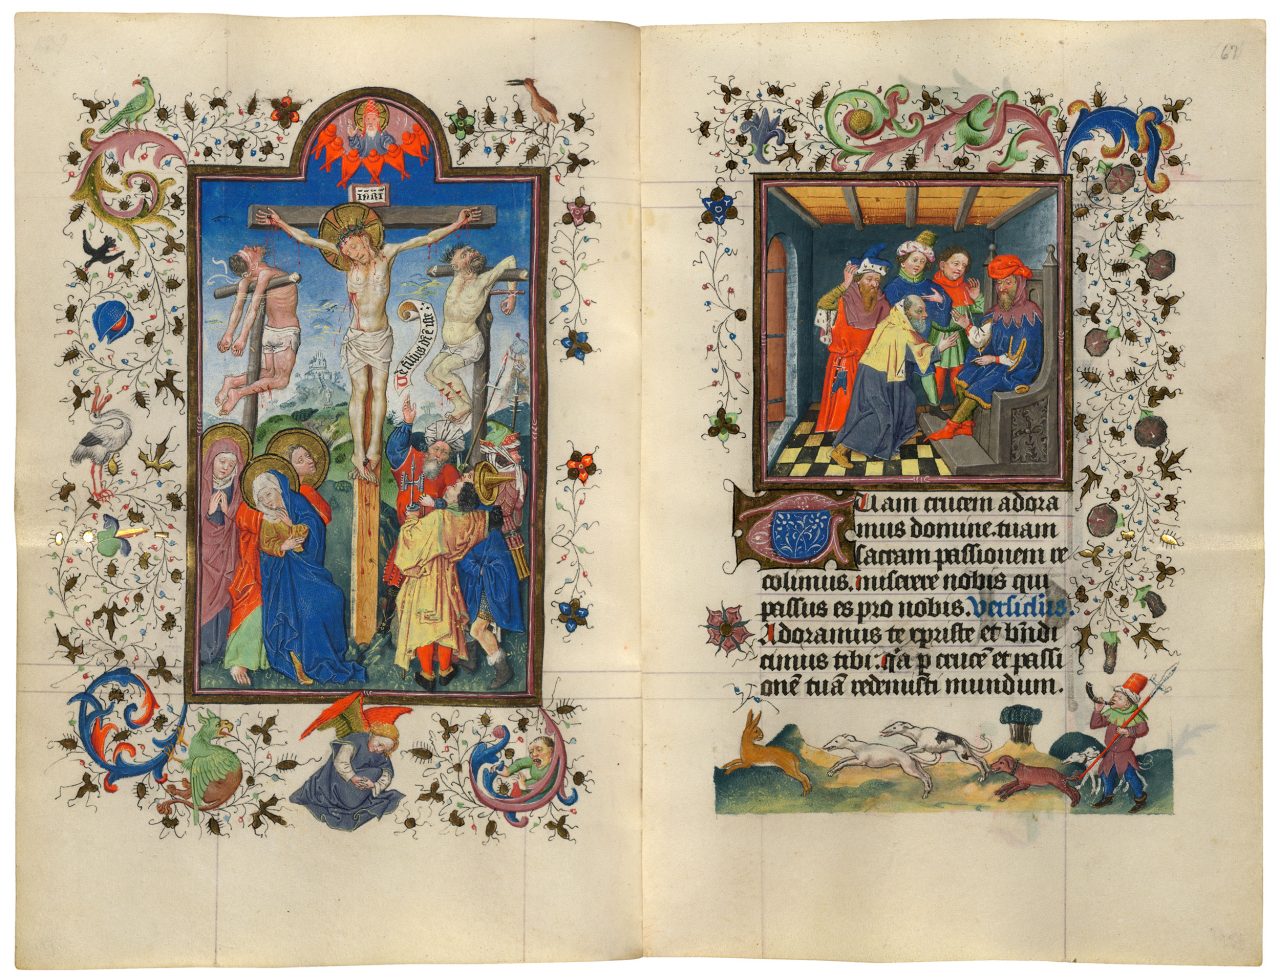 INRI
filius
67
Tuam crucem adora
mus domine. tuam
sacram passionem re
colimus. miserere nobis qui
passus es pro nobis. Versiclus.
Adoramus te xpriste et bn̄di
cimus tibi: q̄a p crucē et passi
onē tuā redemisti mundum.